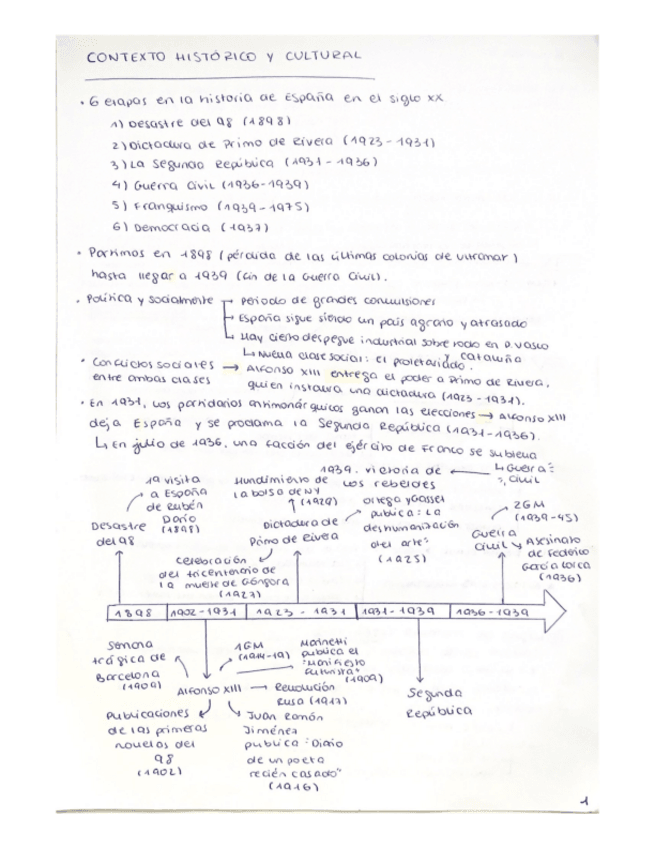 CONTEXTO HISTÓRICO Y CULTURAL
• 6 etapas en la historia de España en el siglo XX
1) Desastre del 98 (1898)
2) Dictadura de Primo de Rivera (1923-1931)
3) La Segunda República (1931-1936)
4) Guerra Civil (1936-1939)
5) Franquismo (1939-1975)
6) Democracia (1937)
• Partimos en 1898 (pérdida de las últimas colonias de ultramar)
hasta llegar a 1939 (fin de la Guerra Civil).
• Política y socialmente
Periodo de grandes convulsiones
España sigue siendo un país agrario y atrasado
Hay cierto despegue industrial sobre todo en P. Vasco
y Cataluña
↳ Nueva clase social: el proletariado.
• Conflictos sociales → Alfonso XIII entrega el poder a Primo de Rivera,
entre ambas clases quien instaura una dictadura (1923-1931).
• En 1931, los partidarios antimonárquicos ganan las elecciones → Alfonso XIII
deja España y se proclama la Segunda República (1931-1936).
↳ En julio de 1936, una facción del ejército de Franco se subleva
↳ Guerra
Civil
1939. Victoria de
los rebeldes
1ª visita
a España
de Rubén
Darío
(1898)
Hundimiento de
la bolsa de NY
(1929)
Ortega y Gasset
publica: La
deshumanización
del arte"
(1925)
2GM
(1939-45)
Desastre
del 98
Dictadura de
Primo de Rivera
Guerra
Civil y Asesinato
de Federico
García Lorca
(1936)
Celebración
del tricentenario de
la muerte de Góngora
(1927)
1898 1902-1931 1923-1931 1931-1939 1936-1939
Semana
trágica de
Barcelona
(1909)
1GM
(1914-19)
Marinetti
publica el
"Manifiesto
futurista"
(1909)
Alfonso XIII → Revolución
Rusa (1917)
Segunda
República
Publicaciones
de las primeras
novelas del
98
(1902)
Juan Ramón
Jiménez
publica "Diario
de un poeta
recién casado"
(1916)
1